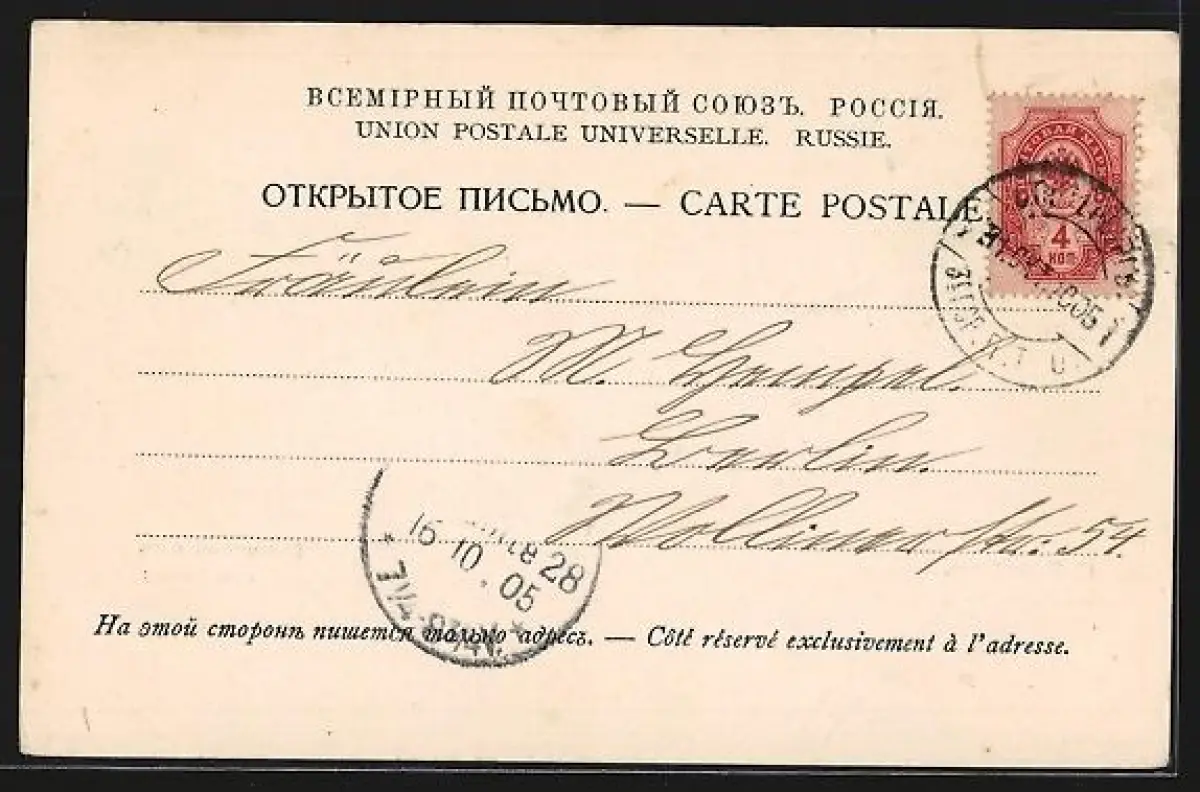 ВСЕМІРНЫЙ ПОЧТОВЫЙ СОЮЗЪ. РОССІЯ.
UNION POSTALE UNIVERSELLE. RUSSIE.
ОТКРЫТОЕ ПИСЬМО. — CARTE POSTALE.
4
КОП.
Fräulein
M. Hempel.
Berlin.
Wollinerstr. 54.
16 10. 05
7¼-8½V.
На этой сторонѣ пишется только адресъ. — Côté réservé exclusivement à l'adresse.